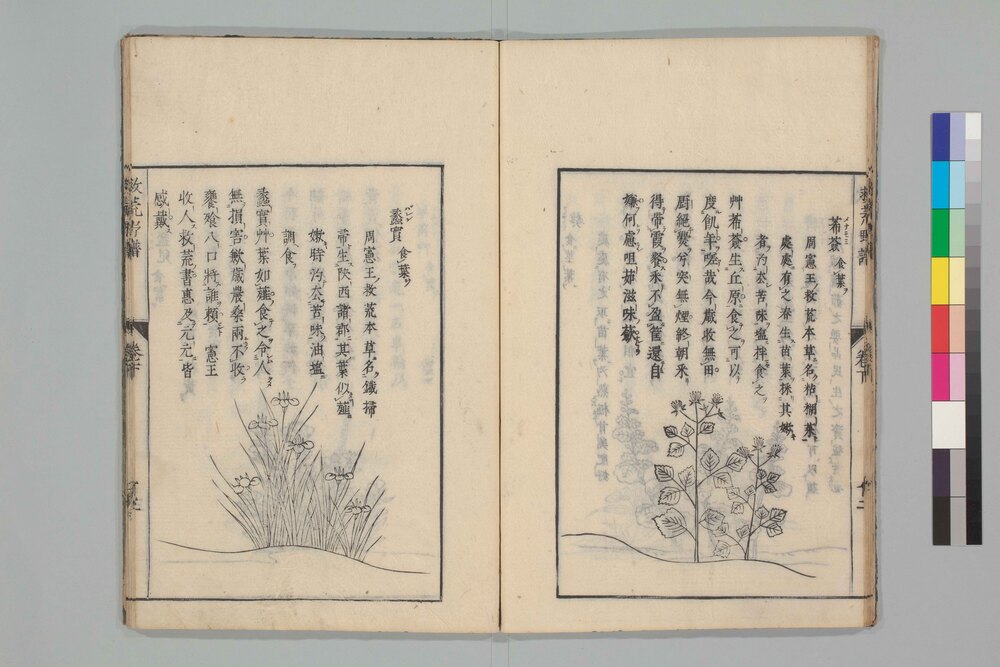 救荒野譜
卷下
十二
莃薟 食葉
メナモミ
周憲王救荒本草名粘糊菜
處處有之春生苗葉採其嫩
者為茹苦味鹽拌食之
艸莃薟生丘原食之可以
度飢年嗟哉今歲收無田
厨絕爨兮突無煙終朝采
得帶霞餐采不盈筐還自
嫌何處咀茹滋味
蠡實 食葉
バリン
周憲王救荒本草名鐵掃
帚生陝西諸郡其葉似薤
嫩時為茹苦味油鹽
調食
蠡實艸葉如薤食之令人
無損害歉歲農桑兩不收
饔飧八口將誰賴 憲王
收人救荒書惠及元元皆
感戴
救荒野譜
卷下